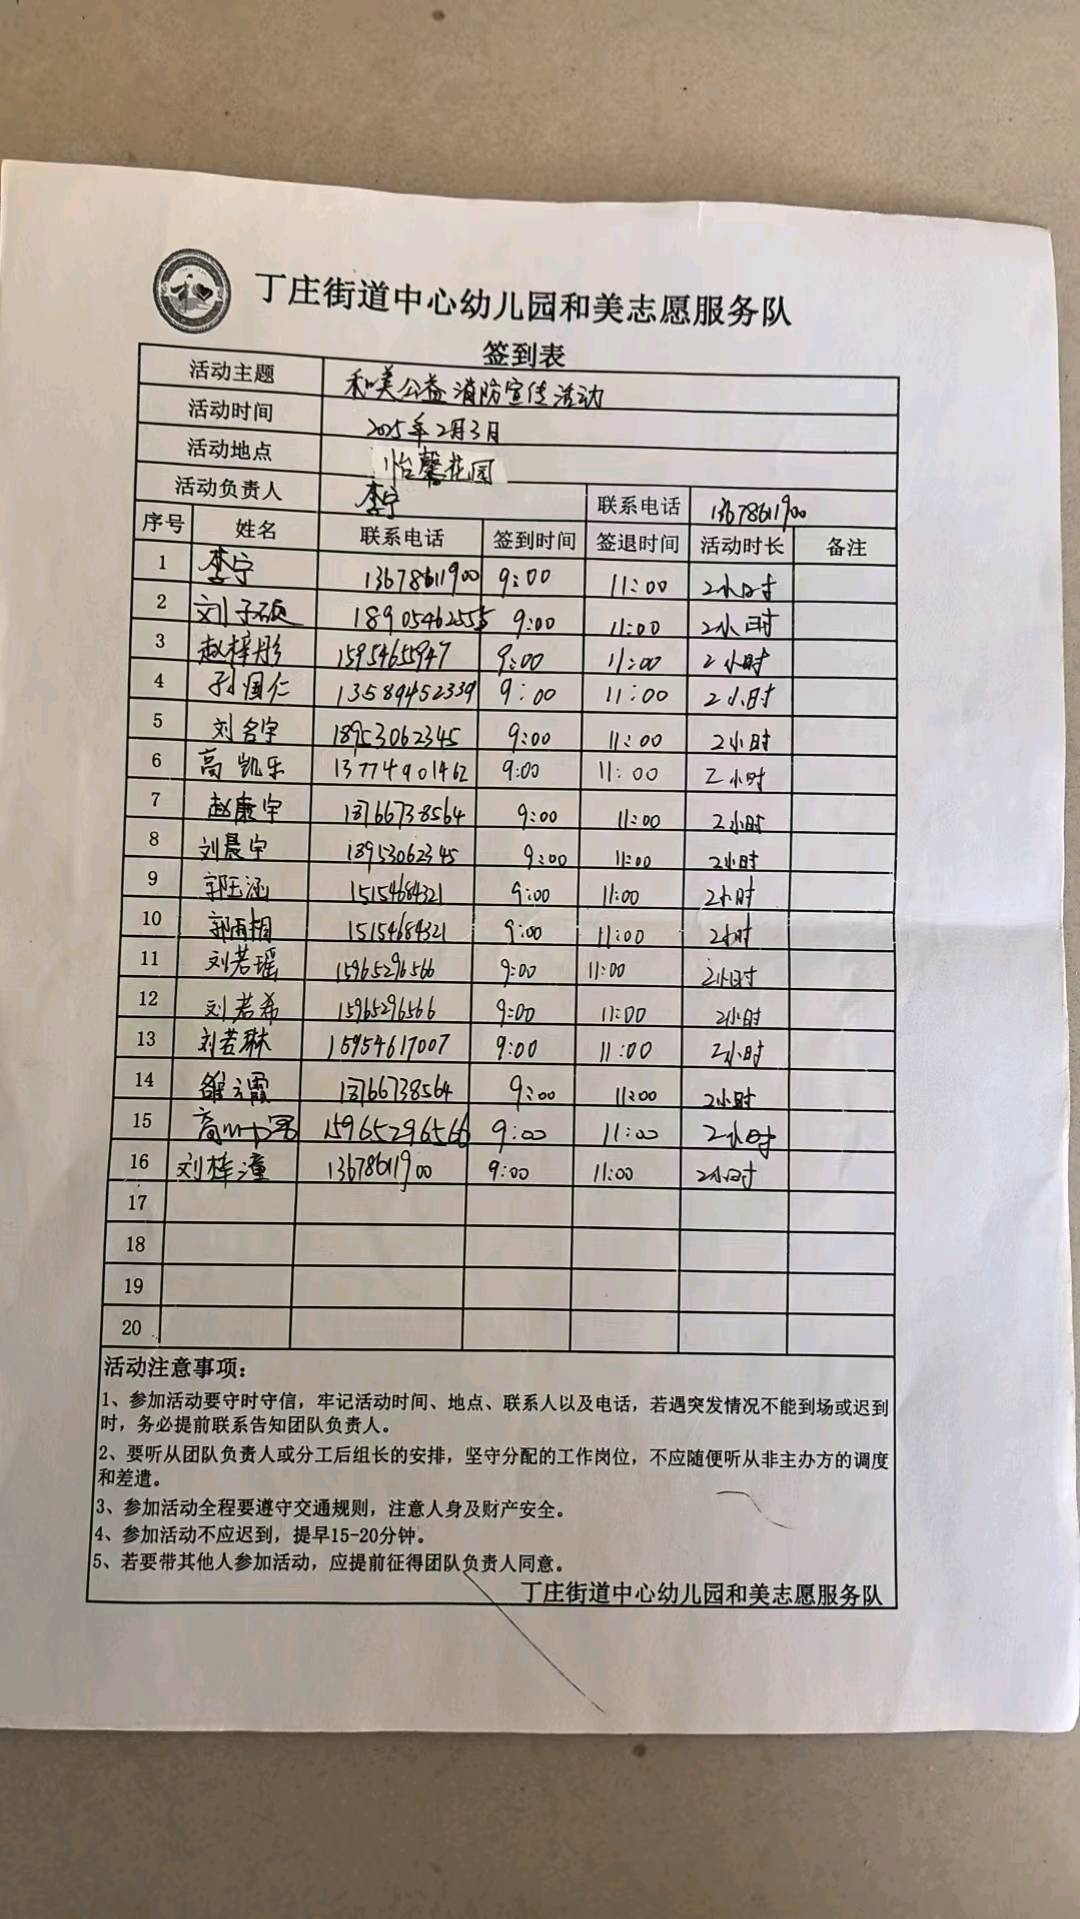 丁庄街道中心幼儿园和美志愿服务队
签到表
活动主题 和美公益消防宣传活动
活动时间 2025年2月3日
活动地点 怡馨花园
活动负责人 李宁 联系电话 13678611900
序号 姓名 联系电话 签到时间 签退时间 活动时长 备注
1 李宁 13678611900 9:00 11:00 2小时
2 刘子硕 18905462555 9:00 11:00 2小时
3 赵梓彤 15954655947 9:00 11:00 2小时
4 孙国仁 13589452339 9:00 11:00 2小时
5 刘名宇 18953062345 9:00 11:00 2小时
6 高凯乐 13774901462 9:00 11:00 2小时
7 赵康宇 13766738564 9:00 11:00 2小时
8 刘晨宇 18953062345 9:00 11:00 2小时
9 郭玉涵 15154684321 9:00 11:00 2小时
10 郭雨桐 15154684321 9:00 11:00 2小时
11 刘若瑶 15965296566 9:00 11:00 2小时
12 刘若希 15965296566 9:00 11:00 2小时
13 刘若琳 15954617007 9:00 11:00 2小时
14 13766738564 9:00 11:00 2小时
15 高 15965296566 9:00 11:00 2小时
16 刘梓潼 13678611900 9:00 11:00 2小时
17
18
19
20
活动注意事项：
1、参加活动要守时守信，牢记活动时间、地点、联系人以及电话，若遇突发情况不能到场或迟到
时，务必提前联系告知团队负责人。
2、要听从团队负责人或分工后组长的安排，坚守分配的工作岗位，不应随便听从非主办方的调度
和差遣。
3、参加活动全程要遵守交通规则，注意人身及财产安全。
4、参加活动不应迟到，提早15-20分钟。
5、若要带其他人参加活动，应提前征得团队负责人同意。
丁庄街道中心幼儿园和美志愿服务队